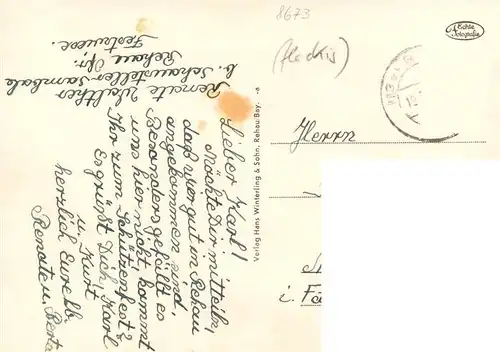 8673
(fleckig)
Echte
Fotografie
Renate Walther
b. Schausteller Sambale
Rehau Ofr.
Festwiese.
Lieber Karl!
Möchte Dir mitteilen,
daß wir gut in Rehau
angekommen sind,
Besonders gefällt es
uns hier nicht, kommt
Ihr zum Schützenfest?
Es grüßt Dich, Karl
u. Kurt
herzlich Eure
Renate u. Berta
Verlag Hans Winterling & Sohn, Rehau/Bay.
Herrn